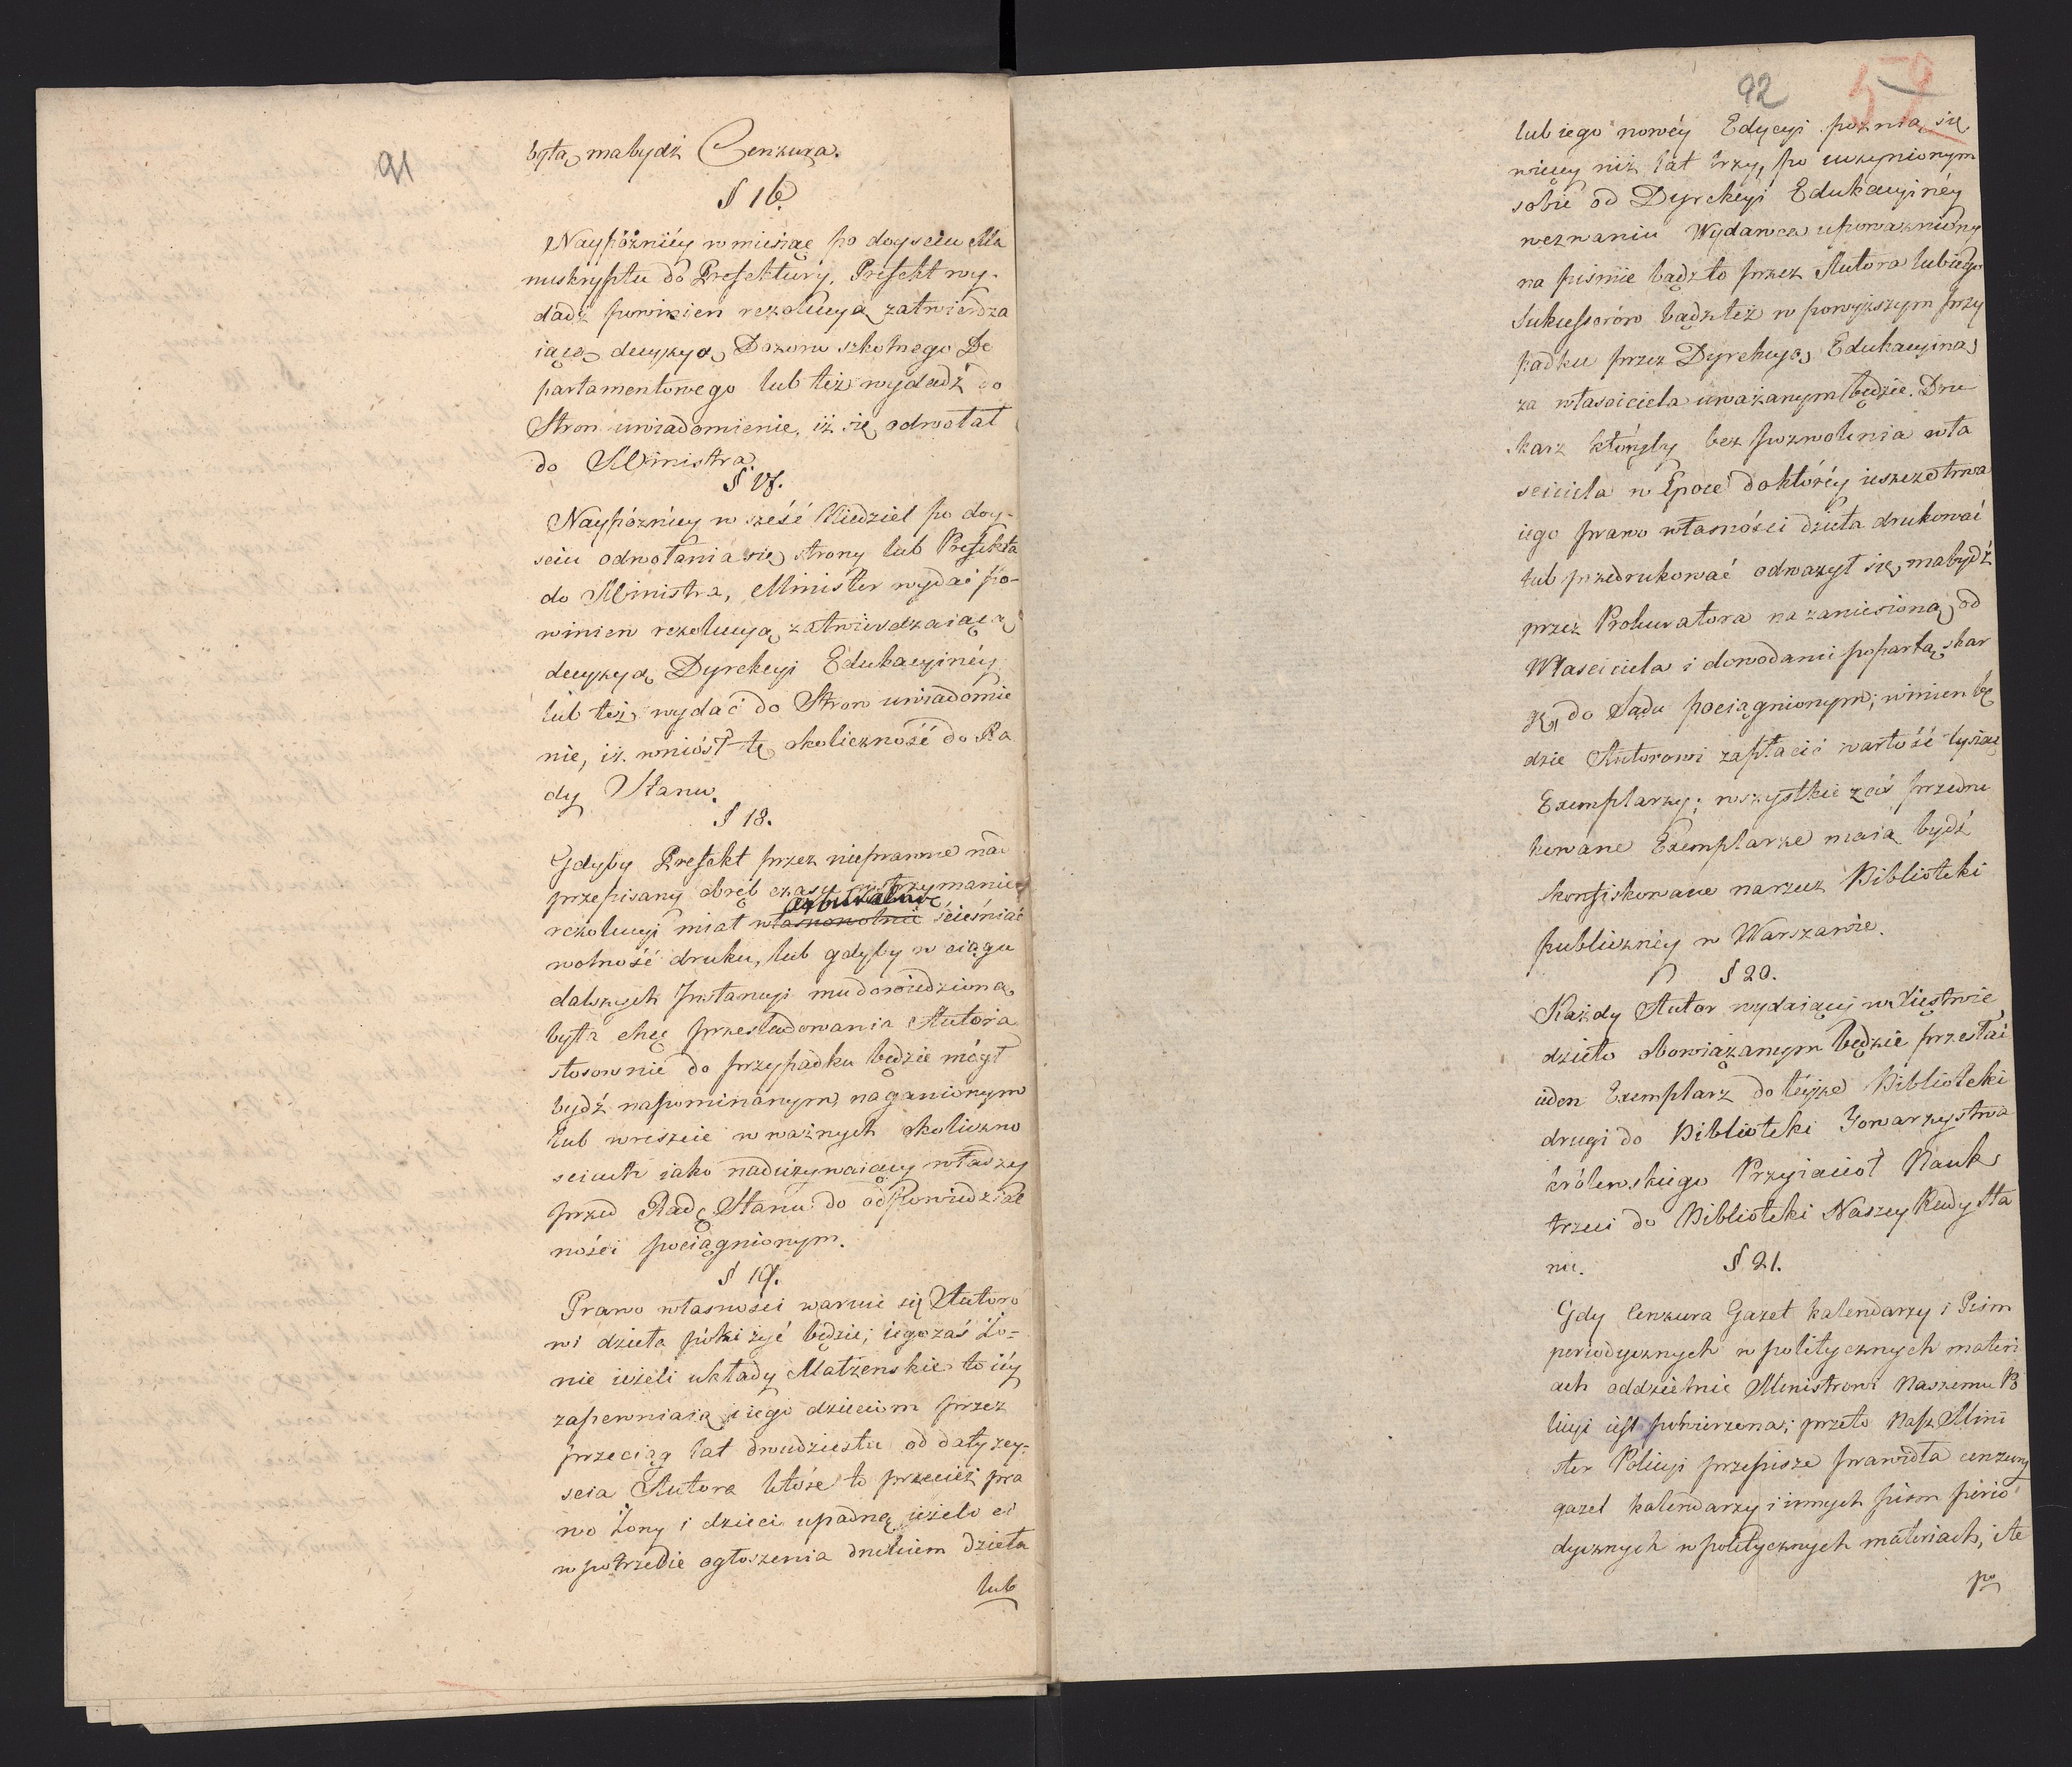 91
byłą mabydź Cenzura.
§ 16.
Naypóźniéy w miesiąc po doyściu Ma
nuskryptu do Prefektury, Prefekt wy-
dadź powinien rezolucyą zatwierdza
iącą decyzyą Dozoru szkolnego De
partamentowego lub też wydadź do
Stron uwiadomienie, iż się odwołał
do Ministra.
§ 17.
Naypóźniey w sześć Niedziel po doy-
sciu odwołania się strony lub Prefekta
do Ministra, Minister wydać po-
winien rezolucyą zatwierdzaiącą
decyzyą Dyrekcyi Edukacyinéy
lub też wydać do Stron uwiadomie
nie, iż wniósł tę okoliczność do Ra
dy Stanu.
§ 18.
Gdyby Prefekt przez nieprawne nad
przepisany obręb czasu wstrzymanie
arbitralnie
rezolucyi miał własnowolnie ścieśniać
wolność druku, lub gdyby w ciągu
dalszych Instancyi mu dowiedziona
była chęć prześladowania Autora
stosownie do przypadku będzie mógł
bydź napominanym, naganionym
lub wreszcie w ważnych okoliczno
sciach iako nadużywaiący władzy
przed Radę Stanu do odpowiedzial
ności pociągnionym.
§ 19.
Prawo własności waruie się Autoro
wi dzieła póki żyć będzie; iego zaś Żo-
nie ieżeli układy Małżenskie to iéy
zapewniaią i iego dzieciom przez
przeciąg lat dwudziestu od daty zey-
scia Autora które to przecież pra
wo Żony i dzieci upadnę ieżeli ci
w potrzebie ogłoszenia drukiem dzieła
lub
92
59
lub iego nowéy Edycyi poznią się
więcy niż lat trzy, po uczynionym
sobie od Dyrekcyi Edukacyinéy
wezwaniu Wydawca upoważniony
na piśmie bądzto przez Autora lub iego
Sukcessorów bądzteż w powyższym przy
padku przez Dyrekcyą Edukacyiną
za własciciela uważanym będzie. Dru
karz któryby bez pozwolenia wła
sciciela w Epoce do któréy ieszcze trwa
iego prawo własności dzieła drukować
lub przedrukować odważył się, mabydź
przez Prokuratora na zaniesioną od
Własciciela i dowodami popartą skar
gę, do Sądu pociągnionym; winien bę
dzie Autorowi zapłacić wartość tysiąc
Exemplarzy; wszystkie zaś przedru
kowane Exemplarze maią bydź
konfiskowane na rzecz Biblioteki
publiczney w Warszawie.
§ 20.
Każdy Autor wydaiący w Xięstwie
dzieło obowiązanym będzie przesłać
ieden Exemplarz do téyże Biblioteki
drugi do Biblioteki Towarzystwa
królewskiego Przyiaciół Nauk
trzeci do Biblioteki Naszey Rady Sta
nu.
§ 21.
Gdy Cenzura Gazet kalendarzy i Pism
periodycznych w politycznych materi
ach oddzielnie Ministrowi Naszemu Po
licyi iest powierzona; przeto Nasz Mini
ster Policyi przepisze prawidła cenzury
gazet kalendarzy i innych pism perio
dycznych w politycznych materiach, i te
po